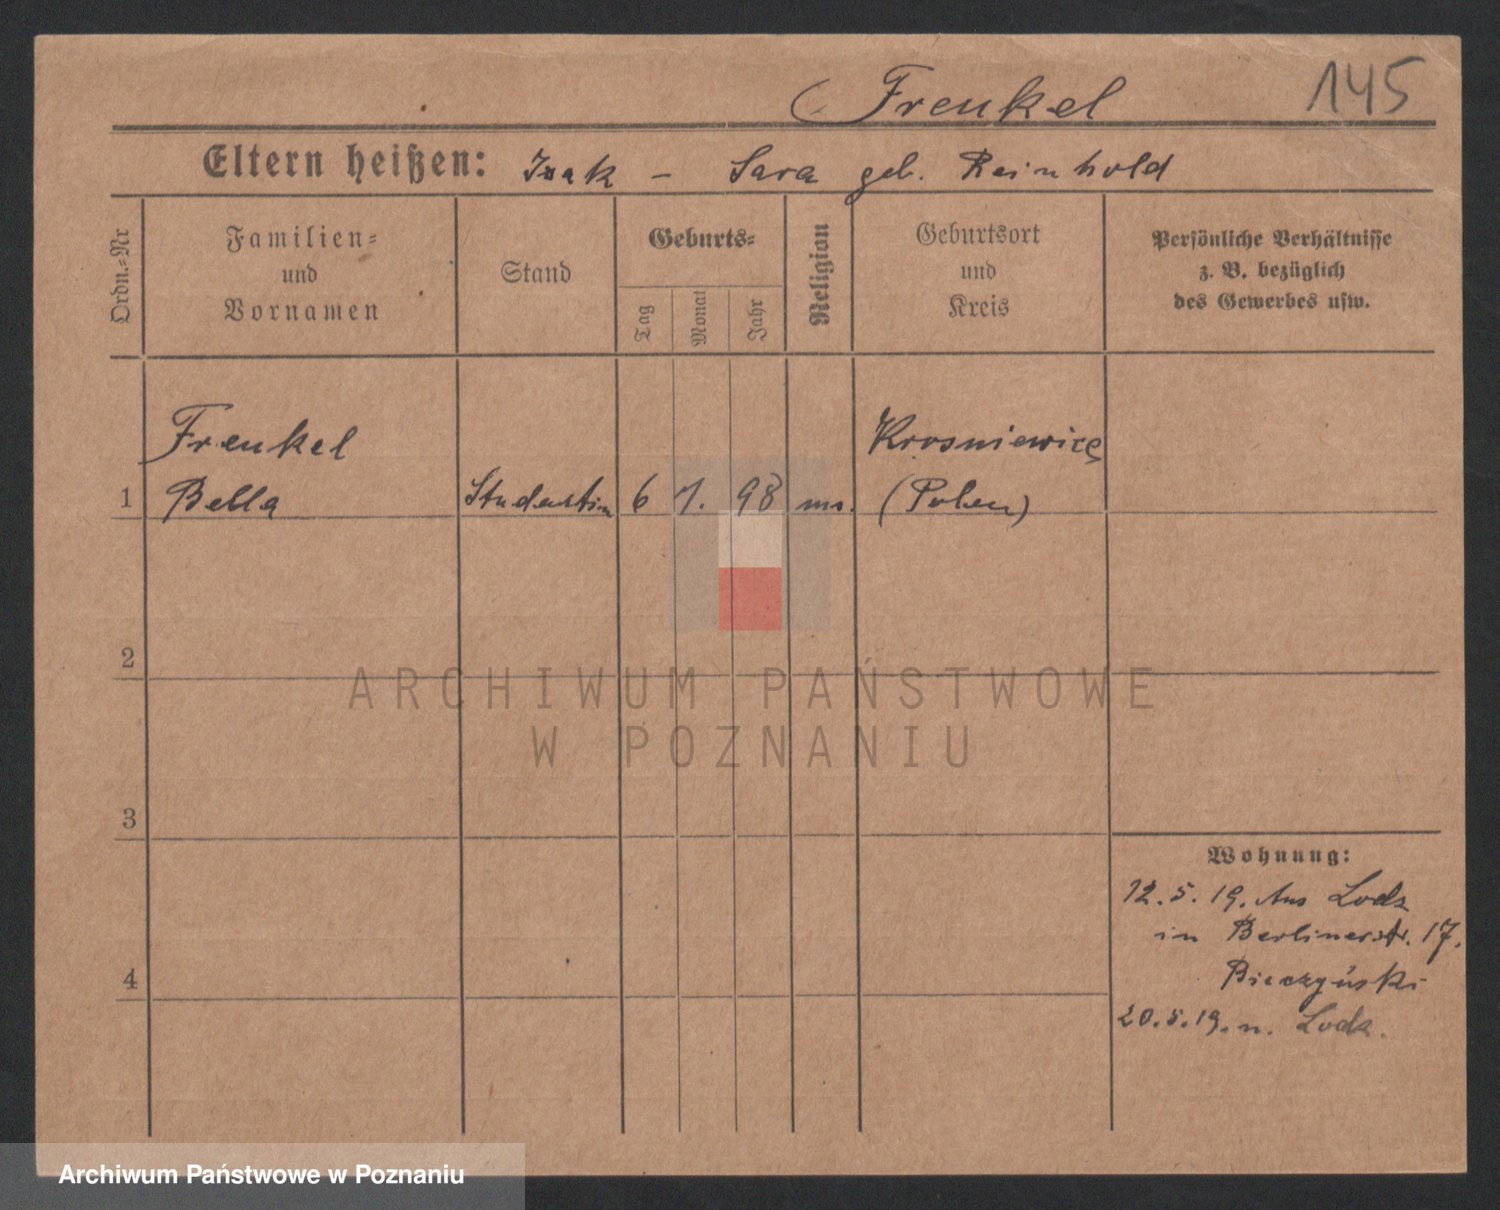 Frenkel 145
Eltern heißen: Isak – Sara geb. Reinhold
Ordn.-Nr
Familien-
und
Vornamen
Stand
Geburts-
Tag
Monat
Jahr
Religion
Geburtsort
und
Kreis
Persönliche Verhältnisse
z. B. bezüglich
des Gewerbes usw.
Frenkel
Krosniewice
1 Bella Studentin 6 1. 98 mos. (Polen)
2
ARCHIWUM PAŃSTWOWE
W POZNANIU
3
Wohnung:
12.5.19. Aus Lodz
in Berlinerstr. 17.
4
20.5.19. n. Lodz.
Archiwum Państwowe w Poznaniu